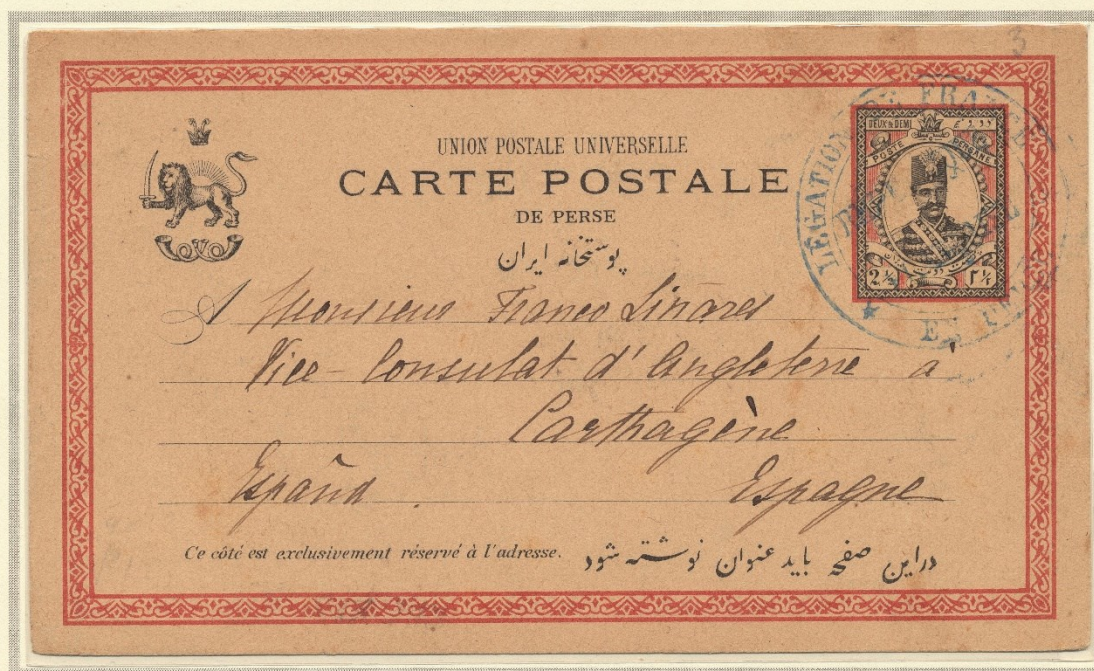 3
UNION POSTALE UNIVERSELLE
CARTE POSTALE
DE PERSE
پوستخانه ایران
LÉGATION DE FRANCE
EN
DEUX & DEMI
POSTE PERSANE
2 ½ ۲ ½
A Monsieur Franco Linares
Vice-Consulat d'Angleterre à
Carthagène
España Espagne
Ce côté est exclusivement réservé à l'adresse.
دراین صفحه باید عنوان نوشته شود